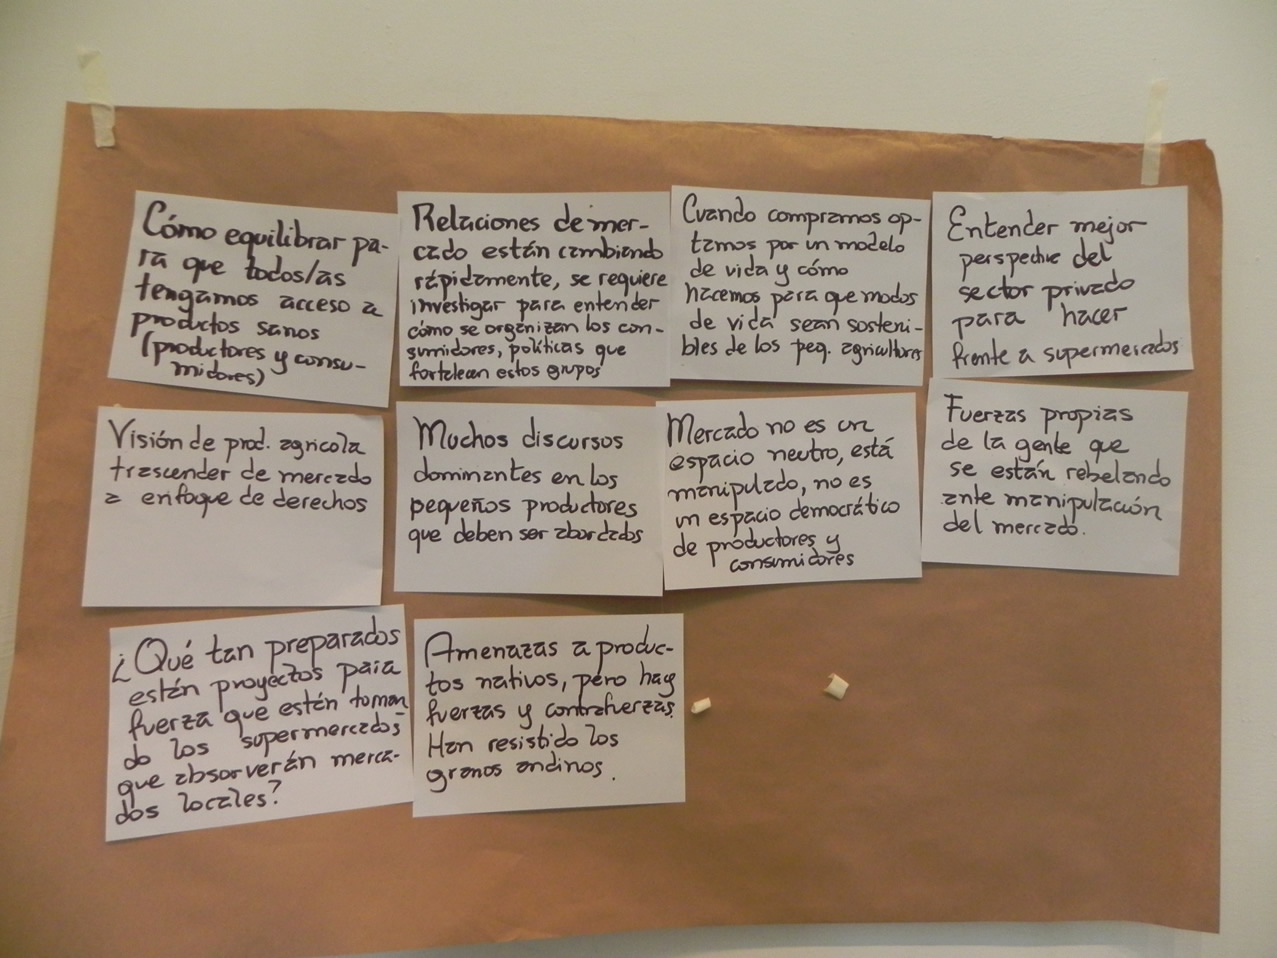 Cómo equilibrar pa-
ra que todos/as
tengamos acceso a
productos sanos
(productores y consu-
midores)
Relaciones de mer-
cado están cambiando
rápidamente, se requiere
investigar para entender
cómo se organizan los con-
sumidores, políticas que
fortalecen estos grupos
Cuando compramos op-
tamos por un modelo
de vida y cómo
hacemos para que modos
de vida sean sosteni-
bles de los peq. agricultores
Entender mejor
perspective del
sector privado
para hacer
frente a supermercados
Visión de prod. agricola
trascender de mercado
a enfoque de derechos
Muchos discursos
dominantes en los
pequeños productores
que deben ser abordados
Mercado no es un
espacio neutro, está
manipulado, no es
un espacio democrático
de productores y
consumidores
Fuerzas propias
de la gente que
se están rebelando
ante manipulación
del mercado.
¿Qué tan preparados
están proyectos para
fuerza que están toman-
do los supermercados
que absorverán merca-
dos locales?
Amenazas a produc-
tos nativos, pero hay
fuerzas y contrafuerzas.
Han resistido los
granos andinos.